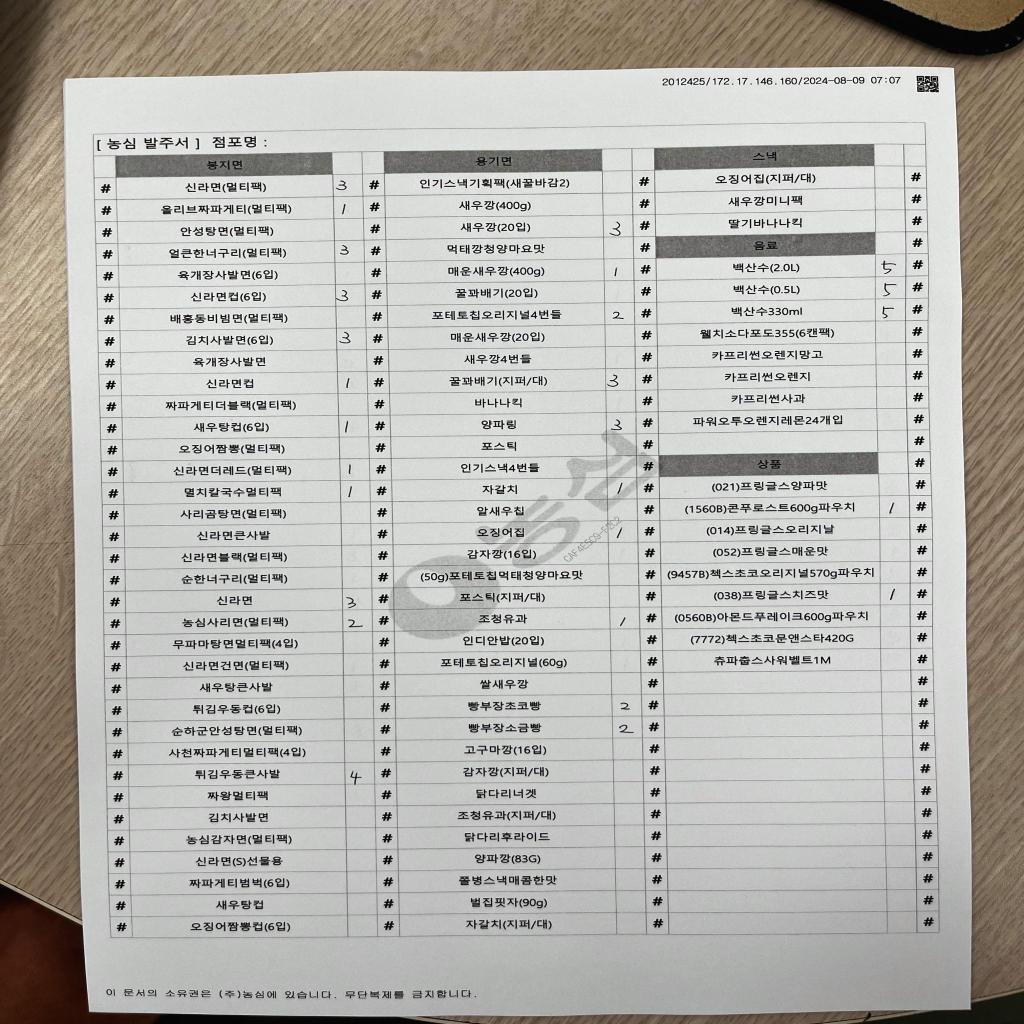 2012425/172.17.146.160/2024-08-09 07:07
[ 농심 발주서 ] 점포명 :
봉지면 용기면 스낵
# 신라면(멀티팩) 3 # 인기스낵기획팩(새꿀바감2) # 오징어집(지퍼/대) #
# 올리브짜파게티(멀티팩) 1 # 새우깡(400g) # 새우깡미니팩 #
# 안성탕면(멀티팩) # 새우깡(20입) 3 # 딸기바나나킥 #
# 얼큰한너구리(멀티팩) 3 # 먹태깡청양마요맛 # 음료 #
# 육개장사발면(6입) # 매운새우깡(400g) 1 # 백산수(2.0L) 5 #
# 신라면컵(6입) 3 # 꿀꽈배기(20입) # 백산수(0.5L) 5 #
# 배홍동비빔면(멀티팩) # 포테토칩오리지널4번들 2 # 백산수330ml 5 #
# 김치사발면(6입) 3 # 매운새우깡(20입) # 웰치소다포도355(6캔팩) #
# 육개장사발면 # 새우깡4번들 # 카프리썬오렌지망고 #
# 신라면컵 1 # 꿀꽈배기(지퍼/대) 3 # 카프리썬오렌지 #
# 짜파게티더블랙(멀티팩) # 바나나킥 # 카프리썬사과 #
# 새우탕컵(6입) 1 # 양파링 3 # 파워오투오렌지레몬24개입 #
# 오징어짬뽕(멀티팩) # 포스틱 # #
# 신라면더레드(멀티팩) 1 # 인기스낵4번들 # 상품 #
# 멸치칼국수멀티팩 1 # 자갈치 1 # (021)프링글스양파맛 #
# 사리곰탕면(멀티팩) # 알새우칩 # (1560B)콘푸로스트600g파우치 1 #
# 신라면큰사발 # 오징어집 1 # (014)프링글스오리지날 #
# 신라면블랙(멀티팩) # 감자깡(16입) # (052)프링글스매운맛 #
# 순한너구리(멀티팩) # (50g)포테토칩먹태청양마요맛 # (9457B)첵스초코오리지널570g파우치 #
# 신라면 3 # 포스틱(지퍼/대) # (038)프링글스치즈맛 1 #
# 농심사리면(멀티팩) 2 # 조청유과 1 # (0560B)아몬드푸레이크600g파우치 #
# 무파마탕면멀티팩(4입) # 인디안밥(20입) # (7772)첵스초코문앤스타420G #
# 신라면건면(멀티팩) # 포테토칩오리지널(60g) # 츄파춥스사워벨트1M #
# 새우탕큰사발 # 쌀새우깡 # #
# 튀김우동컵(6입) # 빵부장초코빵 2 # #
# 순하군안성탕면(멀티팩) # 빵부장소금빵 2 # #
# 사천짜파게티멀티팩(4입) # 고구마깡(16입) # #
# 튀김우동큰사발 4 # 감자깡(지퍼/대) # #
# 짜왕멀티팩 # 닭다리너겟 # #
# 김치사발면 # 조청유과(지퍼/대) # #
# 농심감자면(멀티팩) # 닭다리후라이드 # #
# 신라면(S)선물용 # 양파깡(83G) # #
# 짜파게티범벅(6입) # 쫄병스낵매콤한맛 # #
# 새우탕컵 # 벌집핏자(90g) # #
# 오징어짬뽕컵(6입) # 자갈치(지퍼/대) # #
농심
이 문서의 소유권은 (주)농심에 있습니다. 무단복제를 금지합니다.